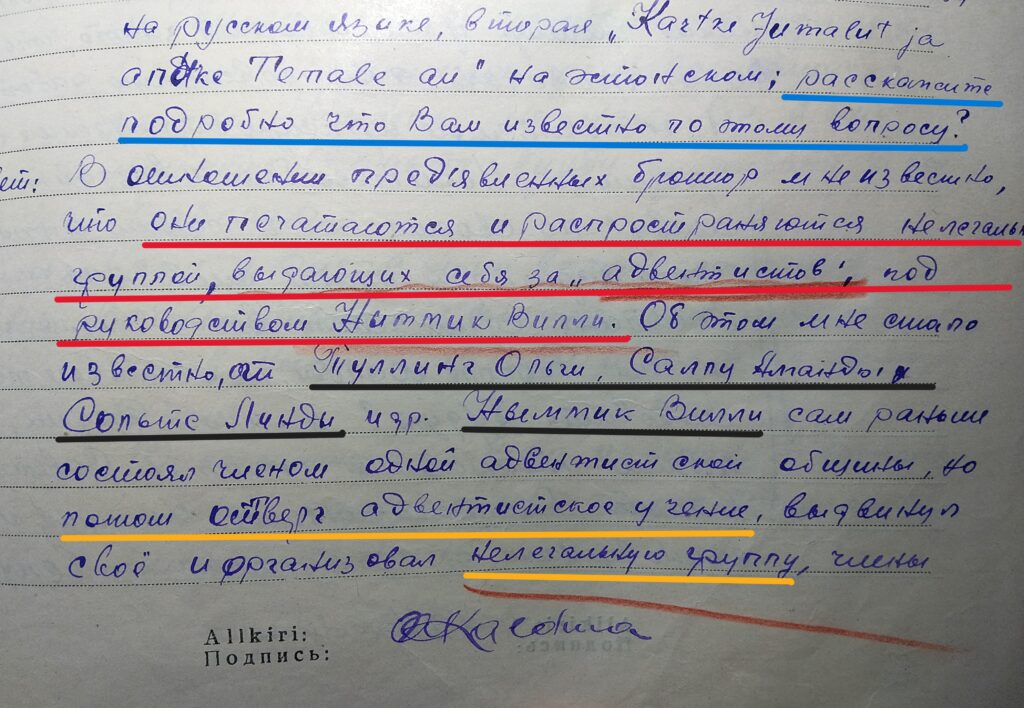 на русском языке, вторая „Kartke Jumalat ja
andke Temale au" на эстонском; расскажите
подробно что Вам известно по этому вопросу?
ет: В отношении предъявленных брошюр мне известно,
что они печатаются и распространяются нелегаль
группой, выдающих себя за „адвентистов", под
руководством Ныммик Вилли. Об этом мне стало
известно, от Туллинг Ольги, Саллу Аманды,
Сольтс Линды и др. Ныммик Вилли сам раньше
состоял членом одной адвентистской общины, но
потом отверг адвентистское учение, выдвинул
своё и организовал нелегальную группу, члены
Allkiri:
Подпись: